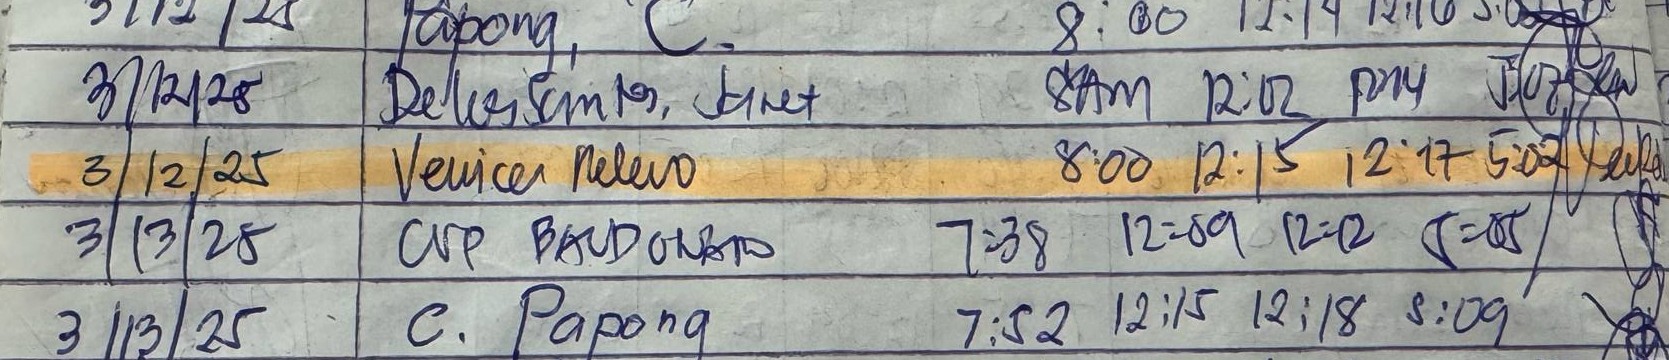 3/12/25 Papong, C. 8:00 12:14 12:16
3/12/25 Delos Santos, Janet 8AM 12:02 12:14 5:02
3/12/25 Venice Relevo 8:00 12:15 12:17 5:02
3/13/25 7:38 12=09 12=12 5=05
3/13/25 C. Papong 7:52 12:15 12:18 5:09